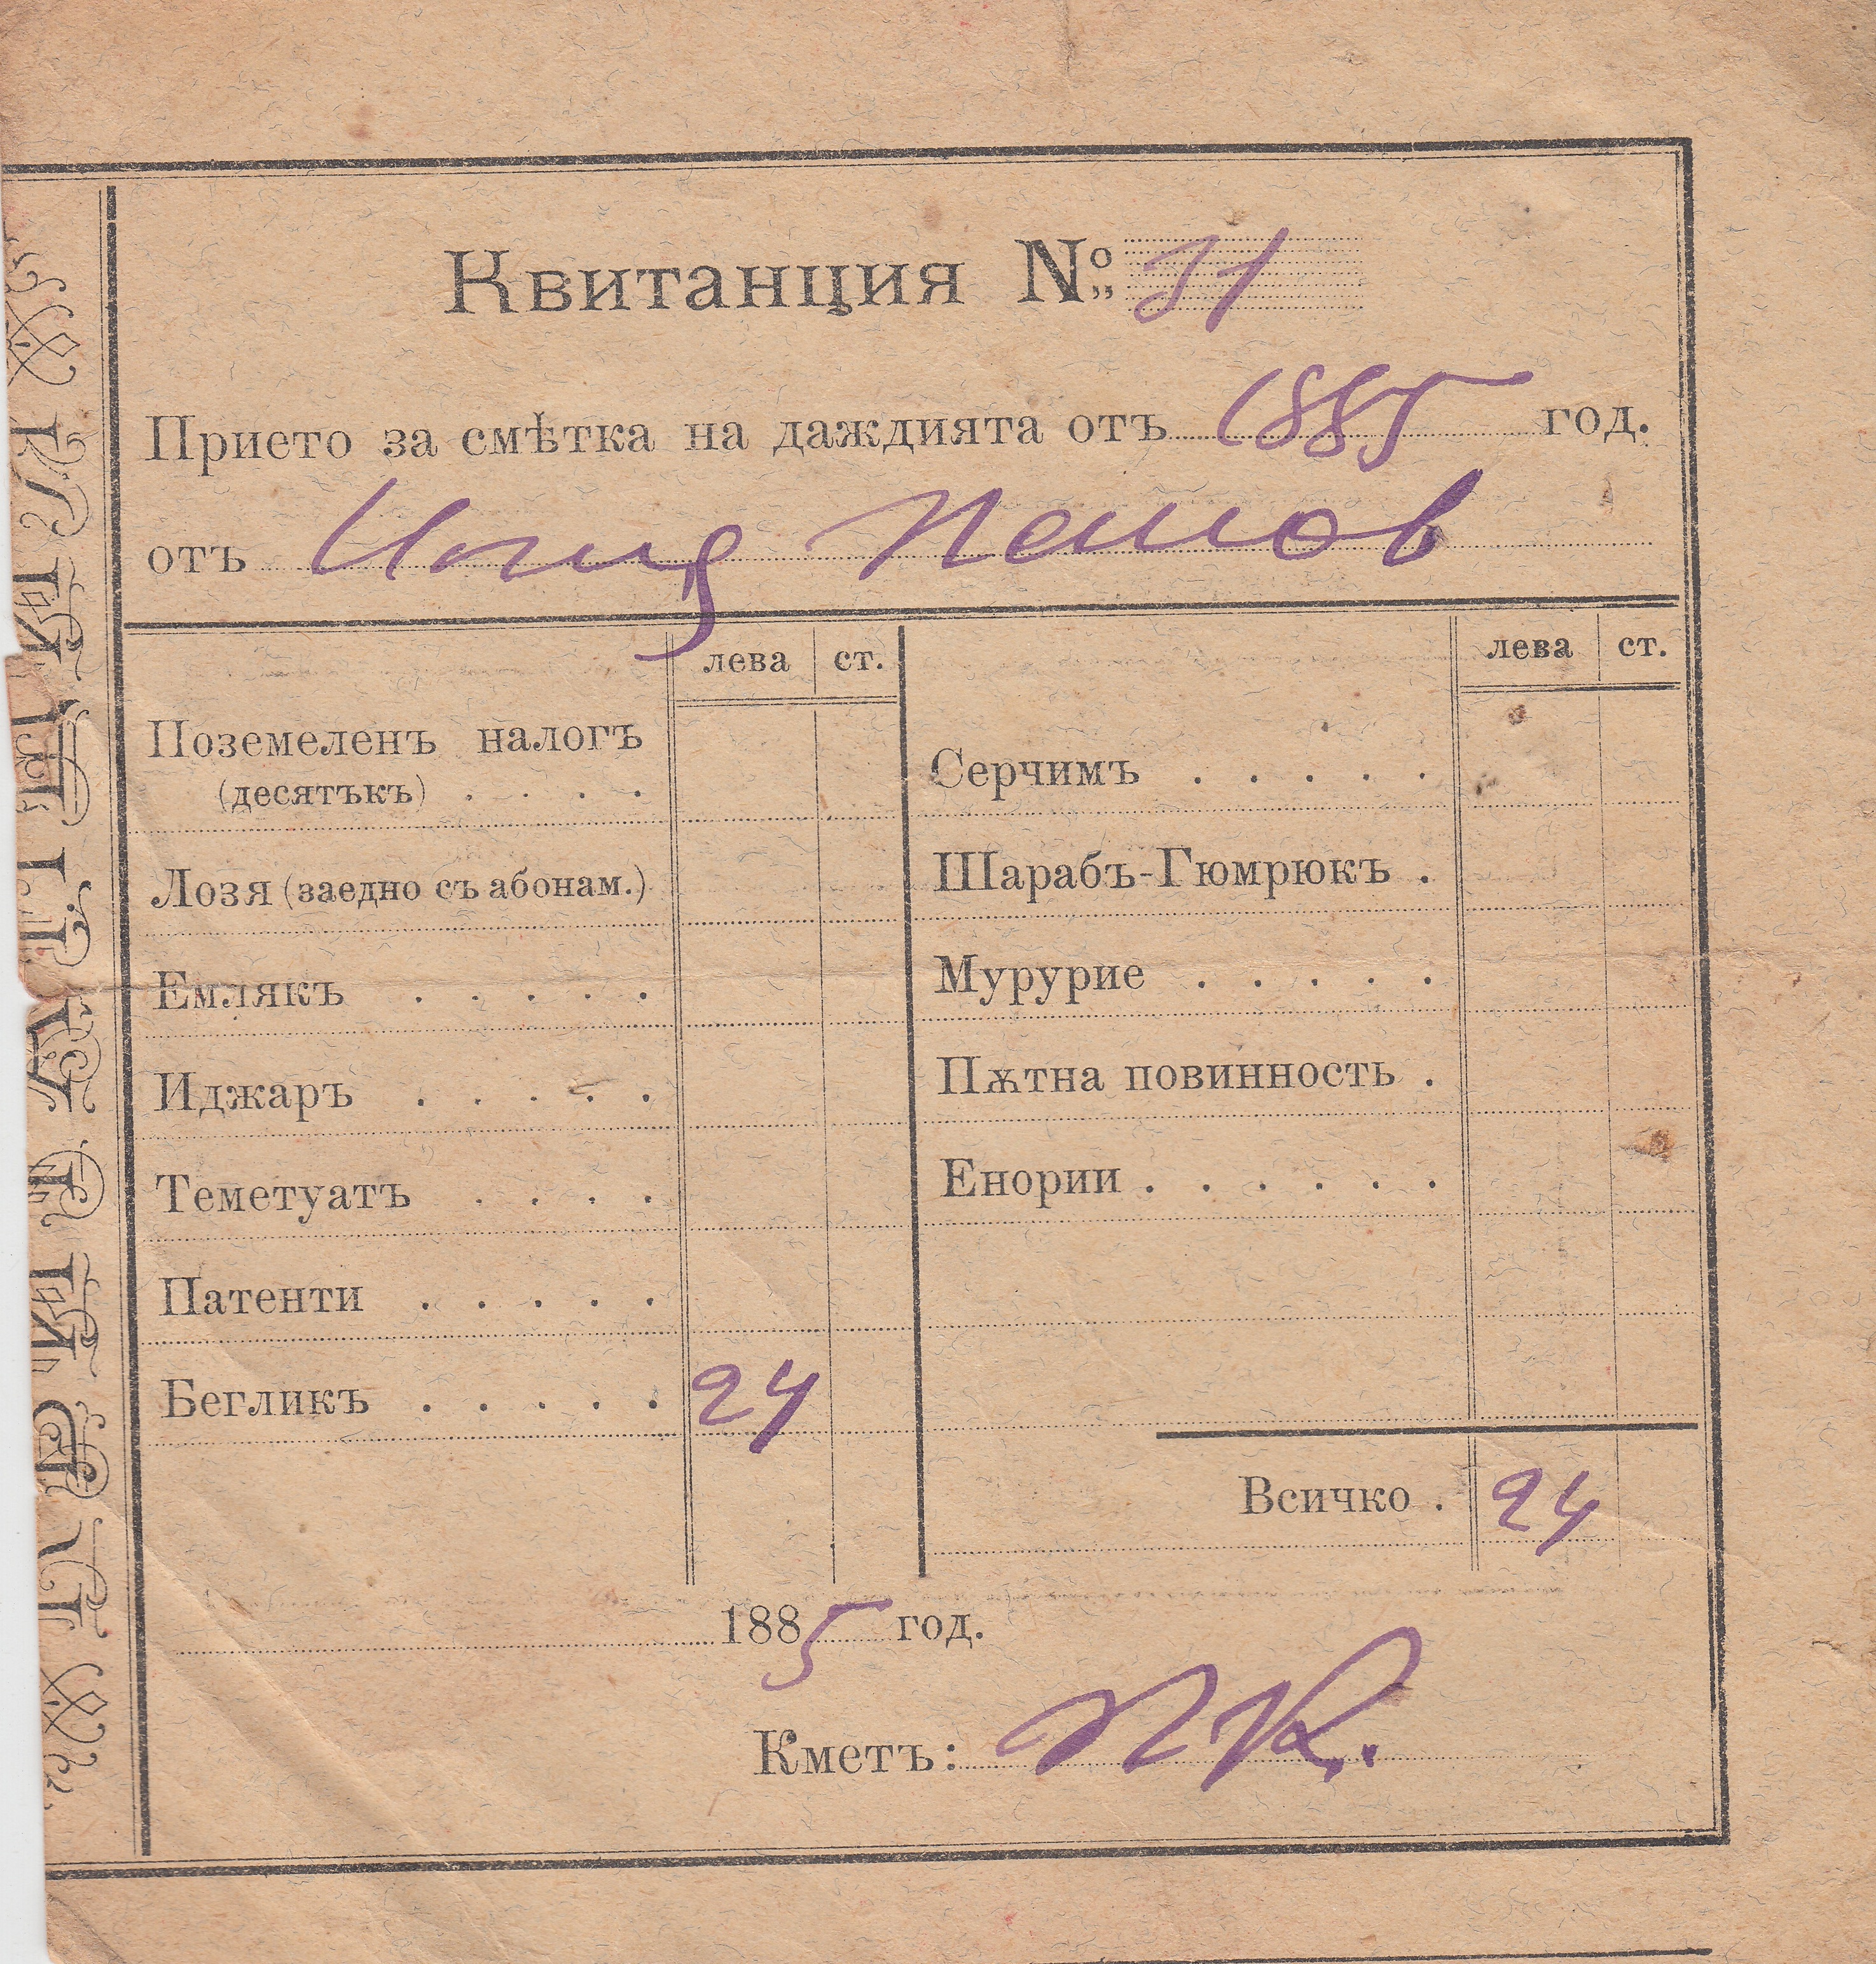 Квитанция №: 31
Прието за смѣтка на даждията отъ 1885 год.
отъ
лева ст.
Поземеленъ налогъ
(десятъкъ) . . . .
Лозя (заедно съ абонам.)
Емлякъ . . . . .
Иджаръ . . . . .
Теметуатъ . . . .
Патенти . . . . .
Бегликъ . . . . . 24
лева ст.
Серчимъ . . . . .
Шарабъ-Гюмрюкъ .
Мурурие . . . . .
Пѫтна повинность .
Енории . . . . . .
Всичко . 24
1885 год.
Кметъ: